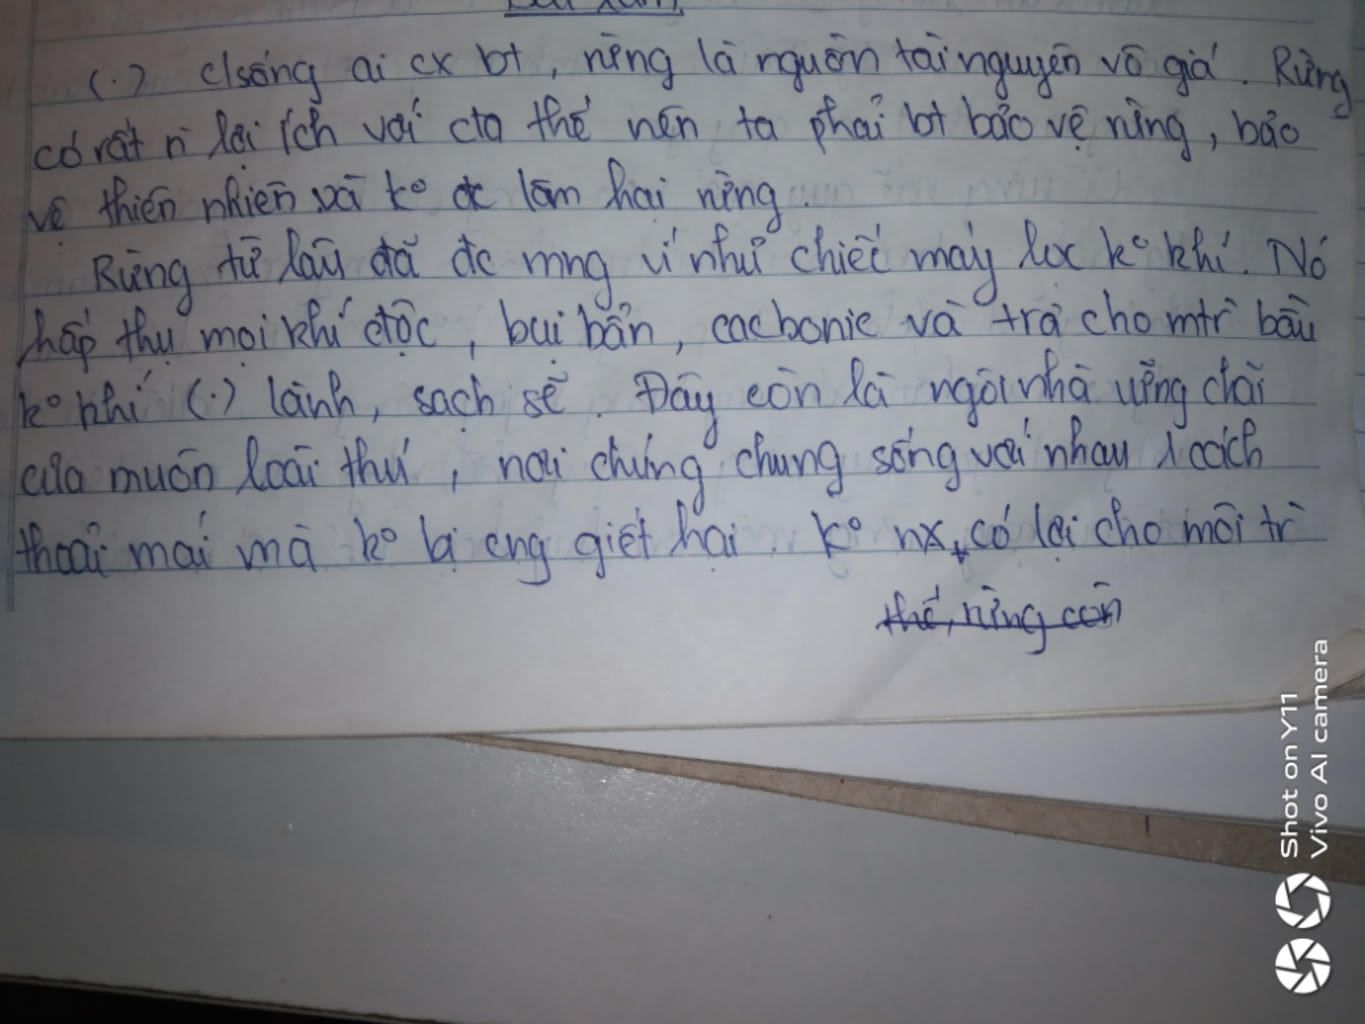 Bài làm
(.) c/sống ai cx bt, rừng là nguồn tài nguyên vô giá. Rừng
có rất n lợi ích với cta thế nên ta phải bt bảo vệ rừng, bảo
vệ thiên nhiên và kº đc làm hại rừng.
Rừng từ lâu đã đc mng ví như chiếc máy lọc kº khí. Nó
hấp thụ mọi khí độc, bụi bẩn, cacbonic và trả cho mtr bầu
kº khí (.) lành, sạch sẽ. Đây còn là ngôi nhà vững chãi
của muôn loài thú, nơi chúng chung sống với nhau 1 cách
thoải mái mà kº bị cng giết hại. Kº nx, có lợi cho môi tr
thế, rừng còn
Shot on Y11
Vivo AI camera